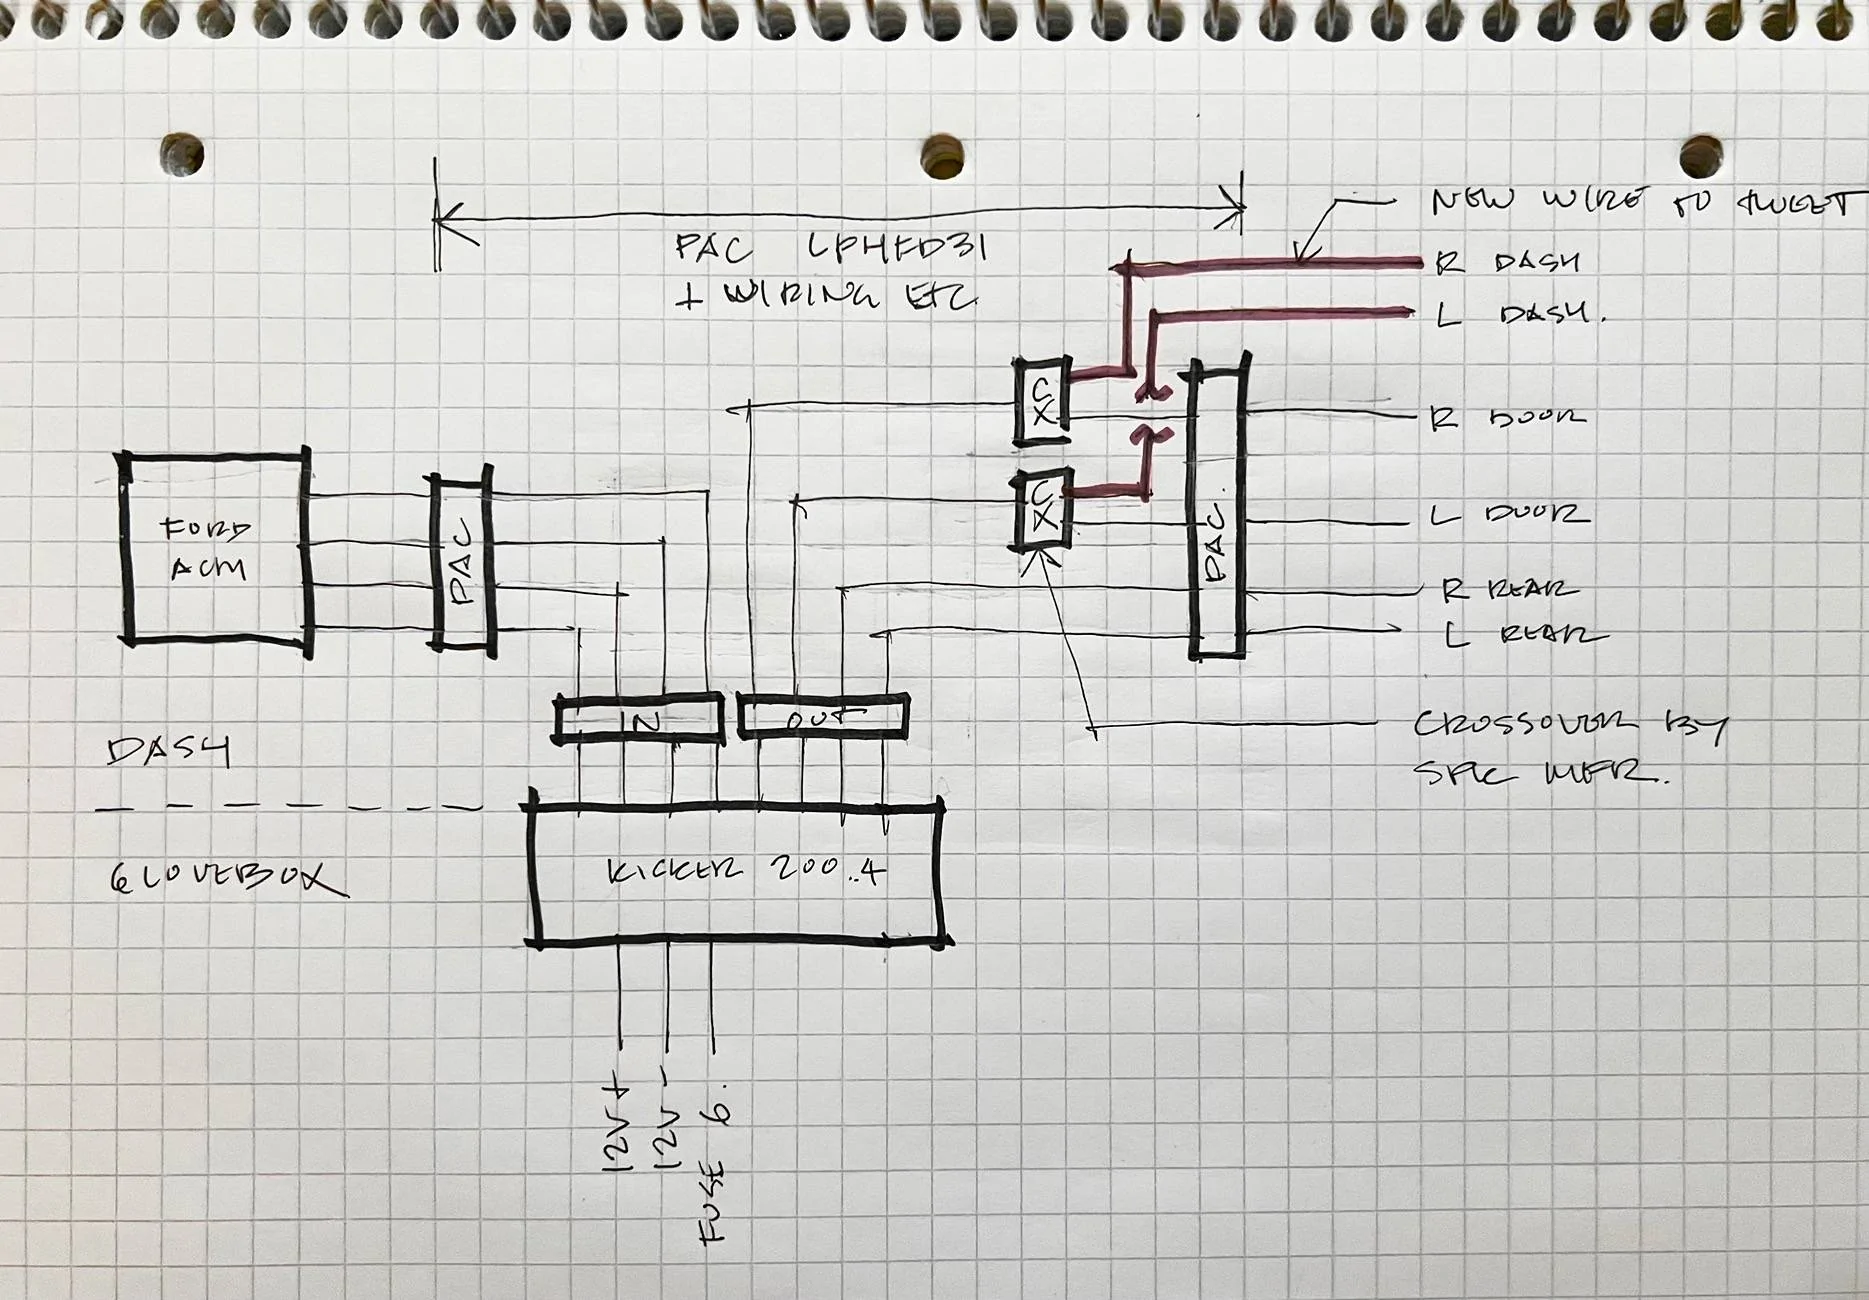 NEW WIRE TO TWEET
PAC LPHFD31
+ WIRING ETC
R DASH
L DASH.
CX
R DOOR
CX
L DOOR
FORD
ACM
PAC
PAC.
R REAR
L REAR
IN
OUT
CROSSOVER BY
SPK MFR.
DASH
GLOVEBOX
KICKER 200.4
12V+
12V-
FUSE 6.